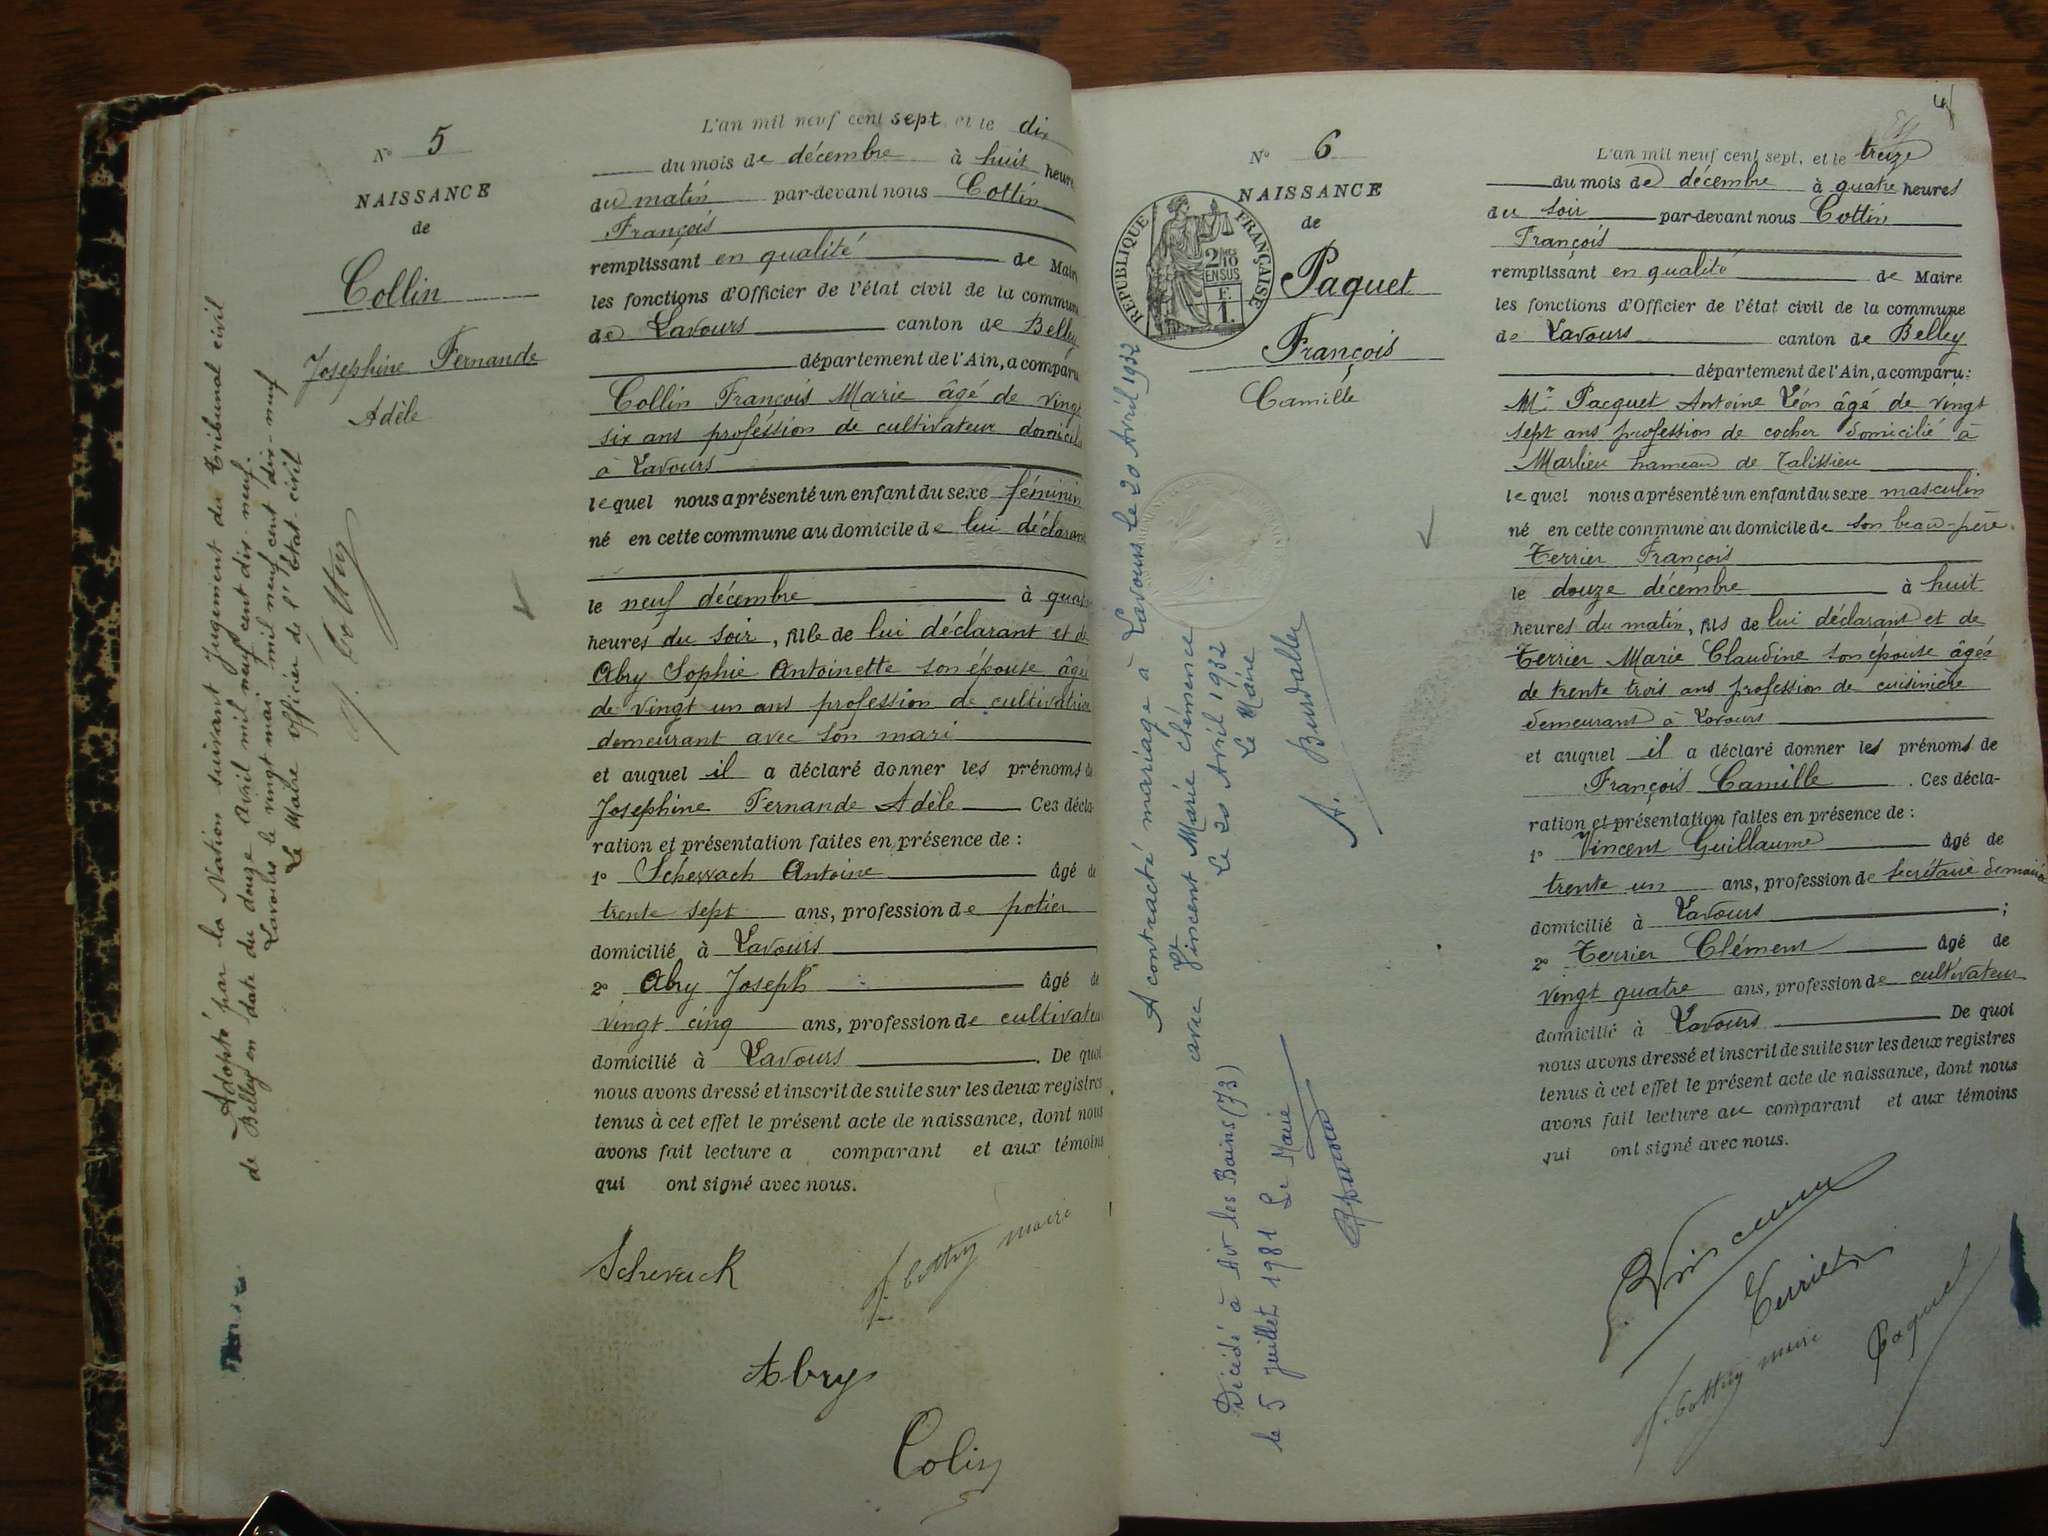 N° 5
NAISSANCE
de
Collin
Josephine Fernande
Adèle
Adopté par la Nation suivant Jugement du Tribunal civil
de Belley en date du douze Avril mil neuf cent dix-neuf.
Lavours le vingt mai mil neuf cent dix-neuf
Le Maire officier de l'État-civil
L'an mil neuf cent sept, et le dix
du mois de décembre à huit heures
du matin par-devant nous Cottin
François
remplissant en qualité de Maire
les fonctions d'Officier de l'état civil de la commune
de Lavours canton de Belley
département de l'Ain, a comparu
Collin François Marie âgé de vingt
six ans profession de cultivateur domicilié
à Lavours
lequel nous a présenté un enfant du sexe féminin
né en cette commune au domicile de lui déclarant
le neuf décembre à quatre
heures du soir, fille de lui déclarant et de
Abry Sophie Antoinette son épouse âgée
de vingt un ans profession de cultivatrice
demeurant avec son mari
et auquel il a déclaré donner les prénoms de
Josephine Fernande Adèle Ces décla-
ration et présentation faites en présence de :
1° Schewach Antoine âgé de
trente sept ans, profession de potier
domicilié à Lavours
2° Abry Joseph âgé de
vingt cinq ans, profession de cultivateur
domicilié à Lavours. De quoi
nous avons dressé et inscrit de suite sur les deux registres
tenus à cet effet le présent acte de naissance, dont nous
avons fait lecture a comparant et aux témoins
qui ont signé avec nous.
Schevack
f. Cottin maire
Abry
Colin
N° 6
NAISSANCE
de
RÉPUBLIQUE FRANÇAISE
2/10
EN SUS
F.
1.
Paquet
François
Camille
A contracté mariage à Lavours le 20 Avril 1932
avec Vincent Marie Clémence
Le 20 Avril 1932
Le Maire
A. Burdallet
Décédé à Aix les Bains (73)
le 5 juillet 1981 Le Maire
L'an mil neuf cent sept, et le treize
du mois de décembre à quatre heures
du soir par-devant nous Cottin
François
remplissant en qualité de Maire
les fonctions d'Officier de l'état civil de la commune
de Lavours canton de Belley
département de l'Ain, a comparu :
Mr Pacquet Antoine Léon âgé de vingt
sept ans profession de cocher domicilié à
Marlieu hameau de Talissieu
lequel nous a présenté un enfant du sexe masculin
né en cette commune au domicile de son beau-père
Terrier François
le douze décembre à huit
heures du matin, fils de lui déclarant et de
Terrier Marie Claudine son épouse âgés
de trente trois ans profession de cuisinière
demeurant à Lavours
et auquel il a déclaré donner les prénoms de
François Camille. Ces décla-
ration et présentation faites en présence de :
1° Vincent Guillaume âgé de
trente un ans, profession de secrétaire de mairie
domicilié à Lavours ;
2° Terrier Clément âgé de
vingt quatre ans, profession de cultivateur
domicilié à Lavours De quoi
nous avons dressé et inscrit de suite sur les deux registres
tenus à cet effet le présent acte de naissance, dont nous
avons fait lecture au comparant et aux témoins
qui ont signé avec nous.
Vincent
Terrier
f. Cottin maire
Paquet